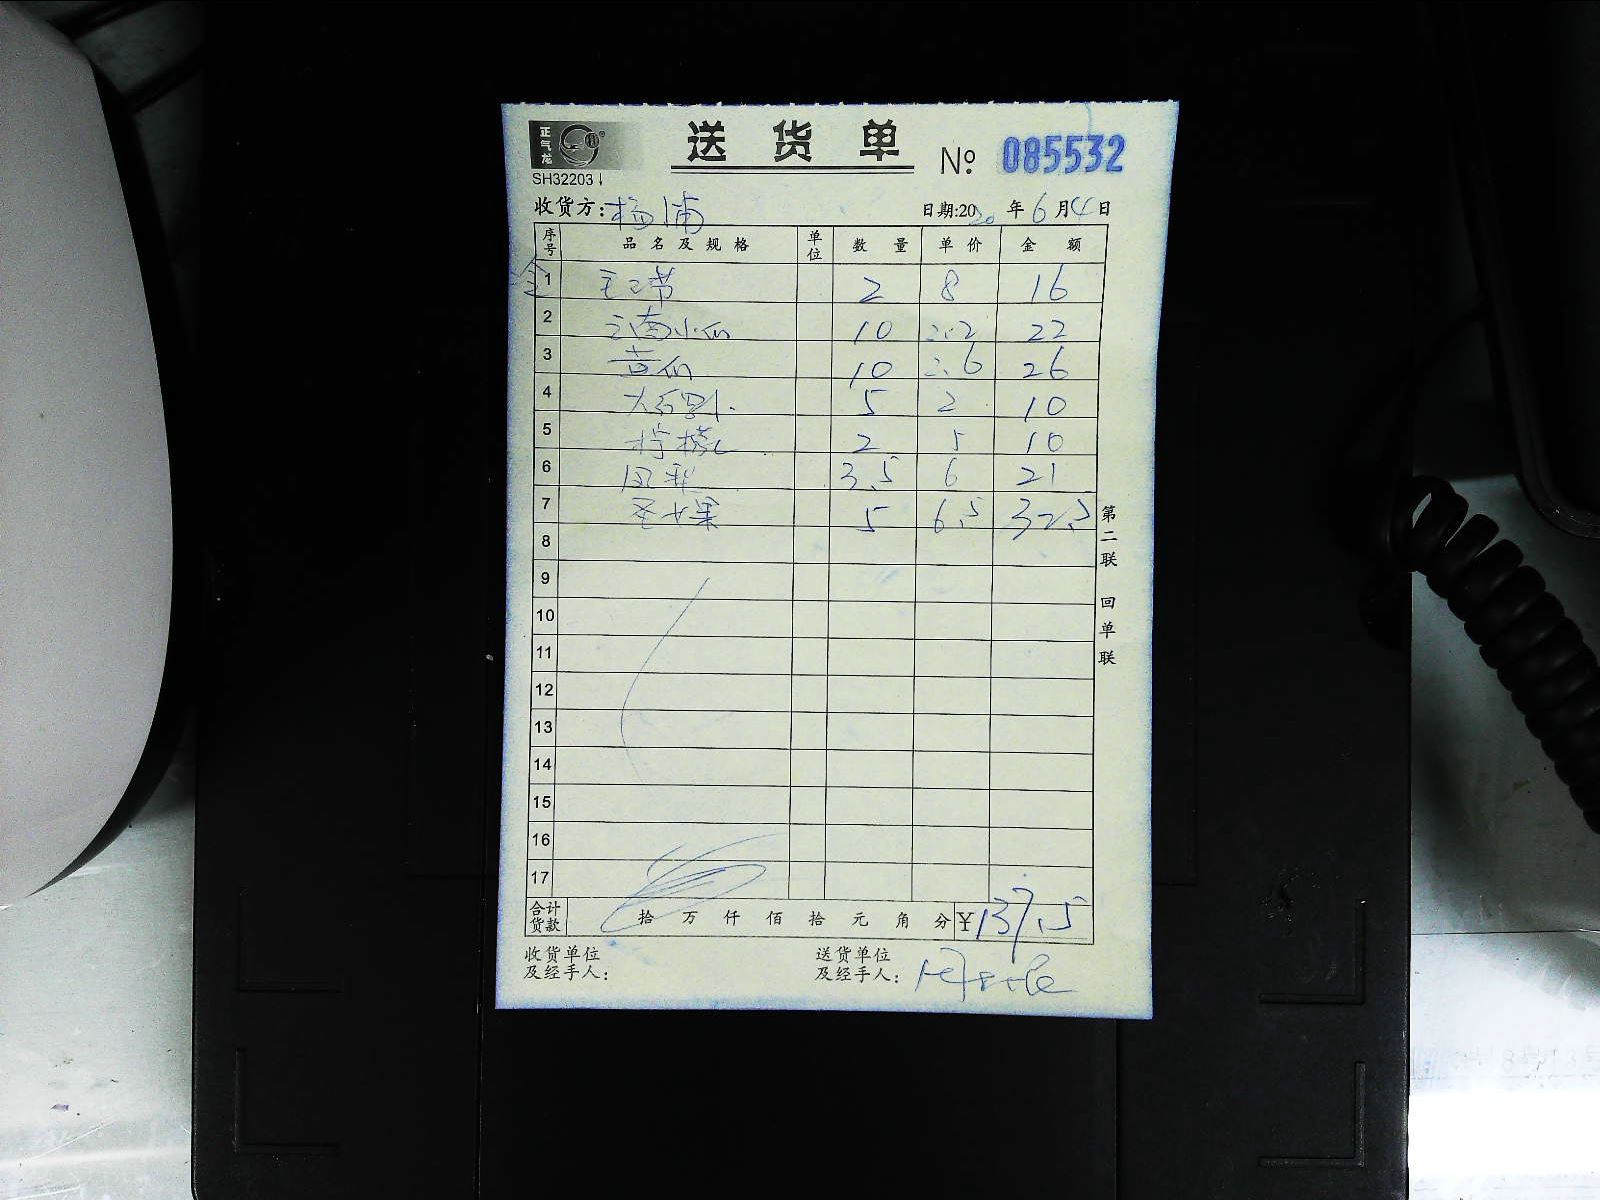 正气龙
送货单 № 085532
SH32203
收货方：杨浦 日期:2020年6月4日
序号 品名及规格 单位 数量 单价 金额
1 2 8 16
2 云南小瓜 10 2.2 22
3 黄瓜 10 2.6 26
4 5 2 10
5 柠檬 2 5 10
6 凤梨 3.5 6 21
7 圣女果 5 6.5 32.5
8
9
10
11
12
13
14
15
16
17
第二联 回单联
合计货款 拾 万 仟 佰 拾 元 角 分 ¥137.5
收货单位 送货单位
及经手人： 及经手人：